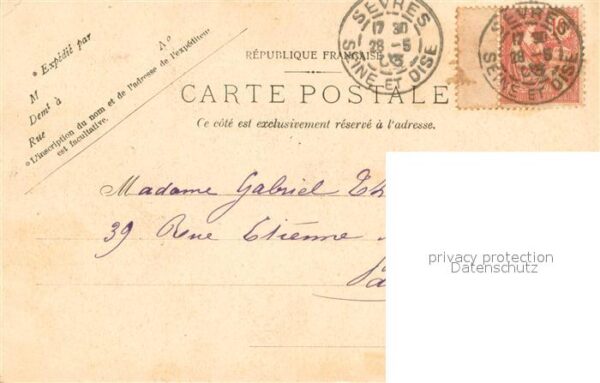 * Expédié par
M
Demt à
Rue
N°
* L'inscription du nom et de l'adresse de l'expéditeur
est facultative.
RÉPUBLIQUE FRANÇAISE
CARTE POSTALE
Ce côté est exclusivement réservé à l'adresse.
SEVRES
17 30
28 -5
SEINE ET OISE
SEVRES
17 30
28 -5
SEINE ET OISE
Madame Gabriel Th
39 Rue Etienne
Pa
privacy protection
Datenschutz